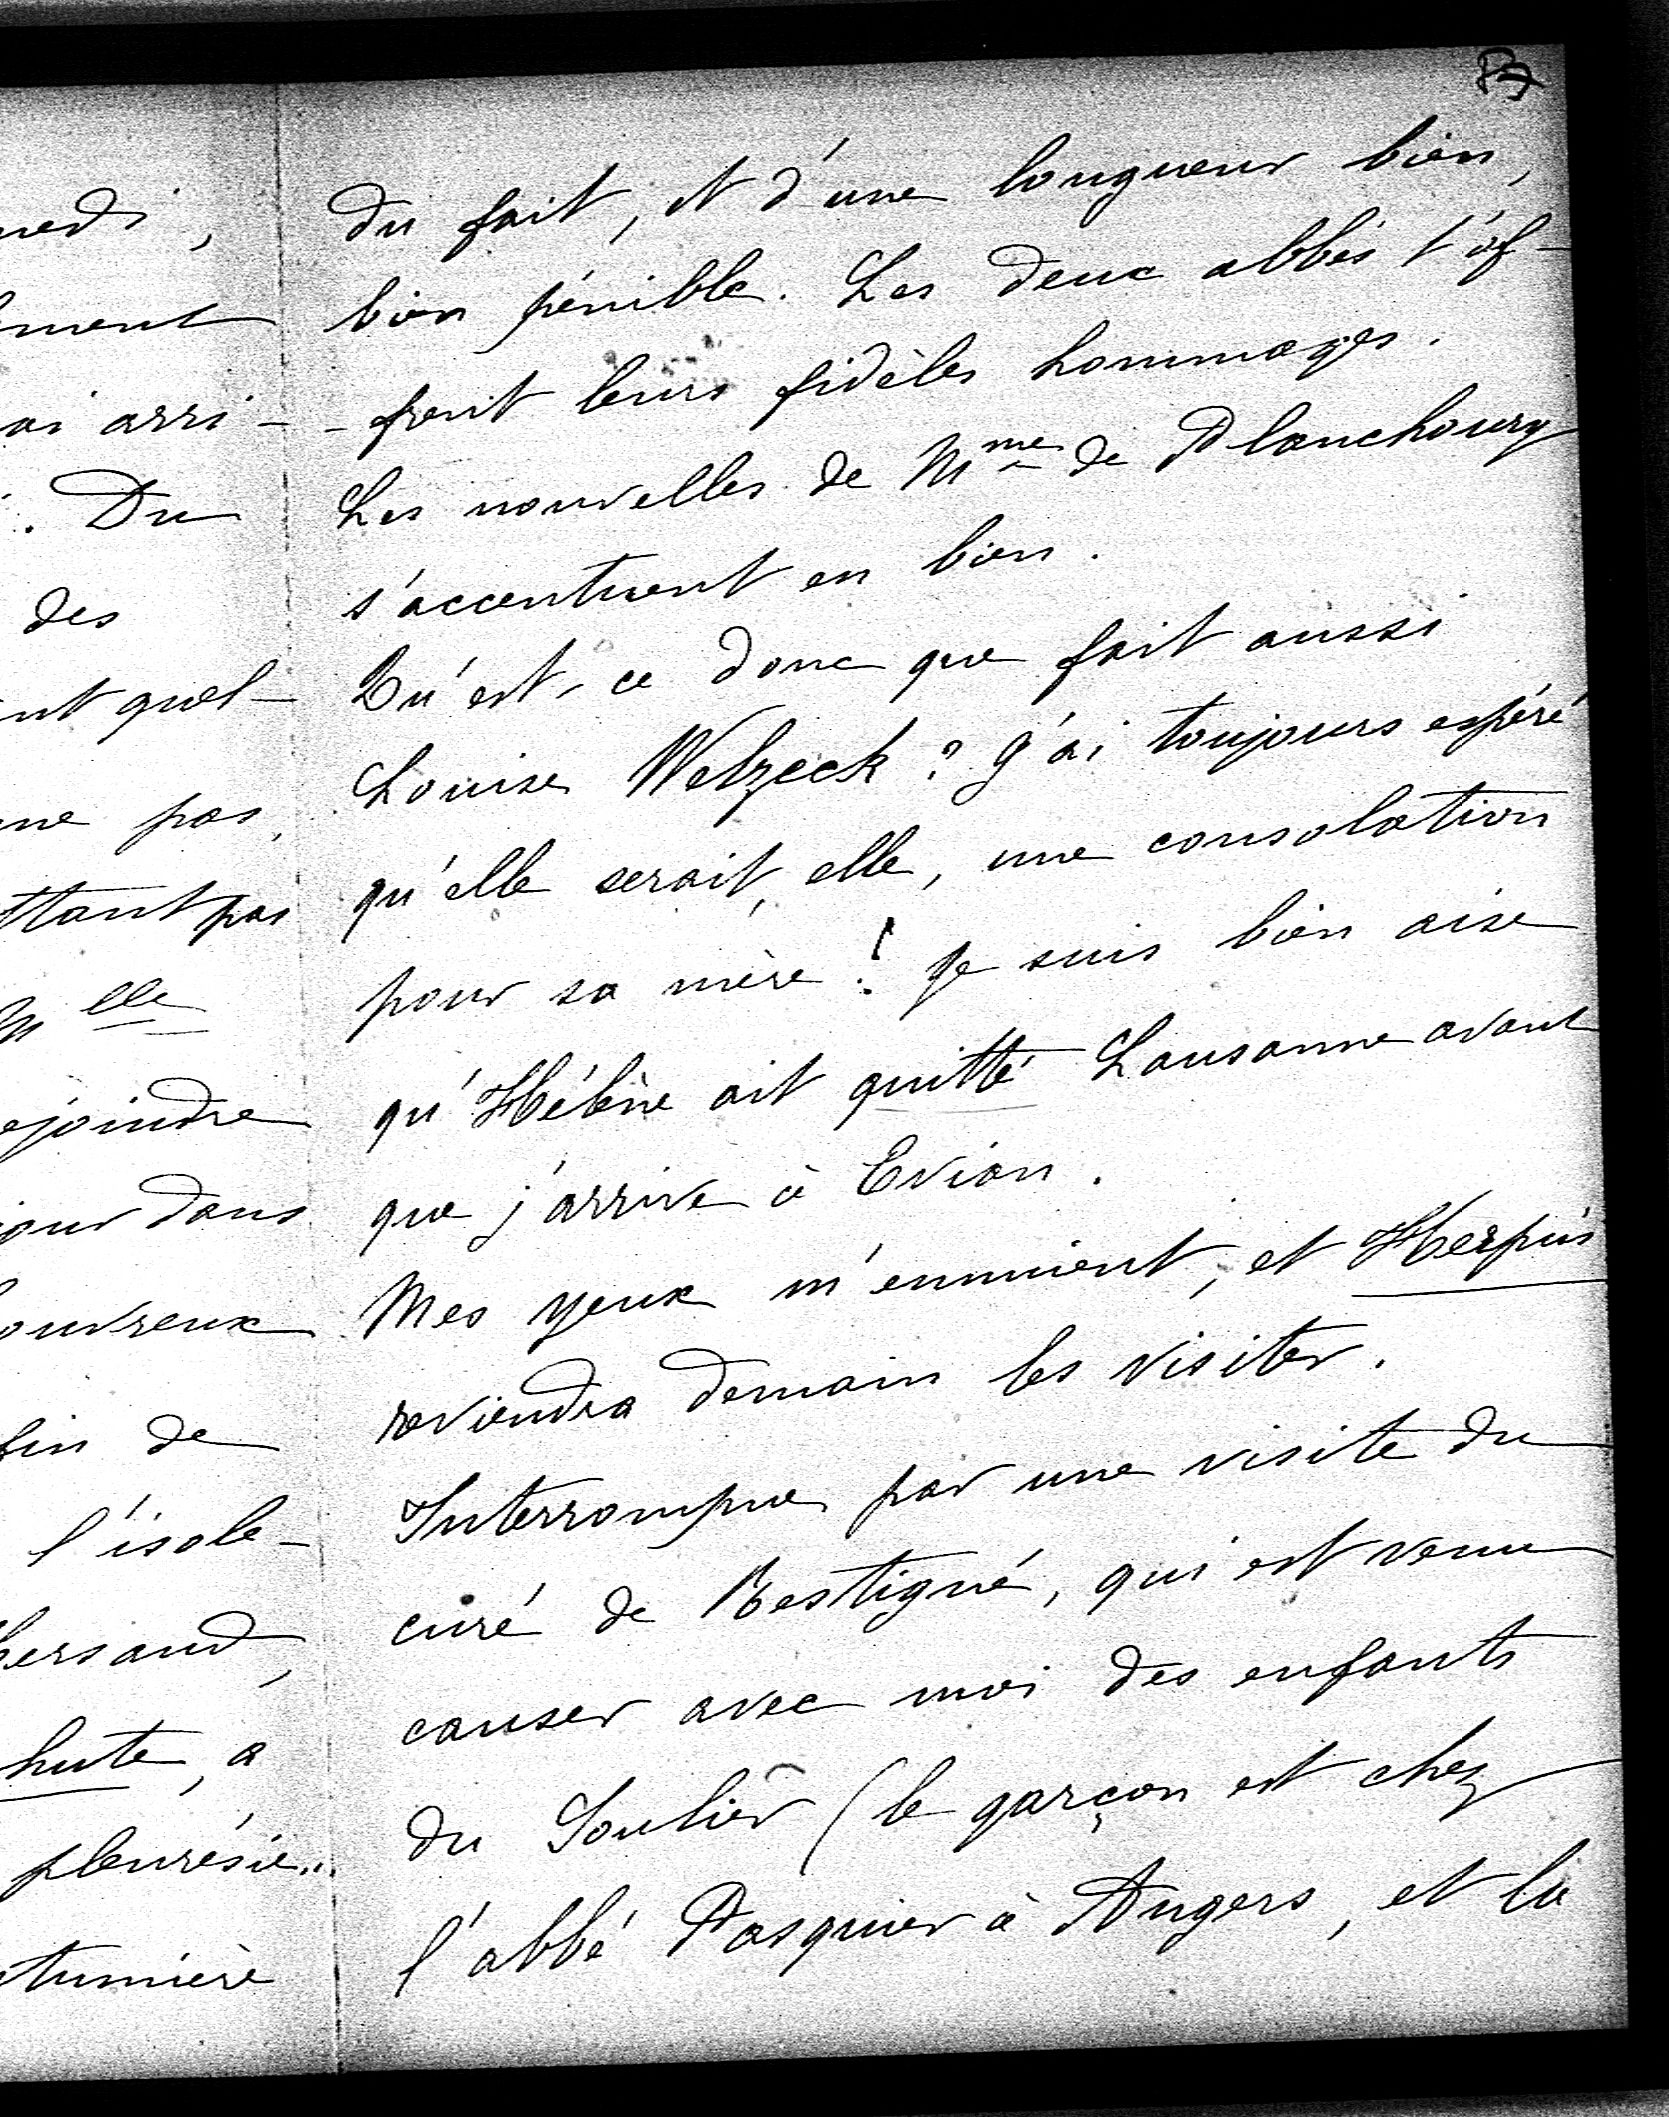 medi,
ment
ai arri-
. Du
des
nt quel-
ne pas,
ttant pas
Mlle
ejoindre
jour dans
ouvreux
fin de
l'isole-
hersand,
hute, a
pleurésie..
tumière
du fait, et d'une longueur bien,
bien pénible. Les deux abbés t'of-
-frent leurs fidèles hommages.
Les nouvelles de Mme de Planchoury
s'accentuent en bien.
Qu'est-ce donc que fait aussi
Louise Welzeck ? J'ai toujours espéré
qu'elle serait, elle, une consolation
pour sa mère ! Je suis bien aise
qu'Hélène ait quitté Lausanne avant
que j'arrive à Evian.
Mes yeux m'ennuient, et Herpin
reviendra demain les visiter.
Interrompue par une visite du
curé de Restigné, qui est venu
causer avec moi des enfants
du Soulier (le garçon est chez
l'abbé Pasquier à Angers, et la